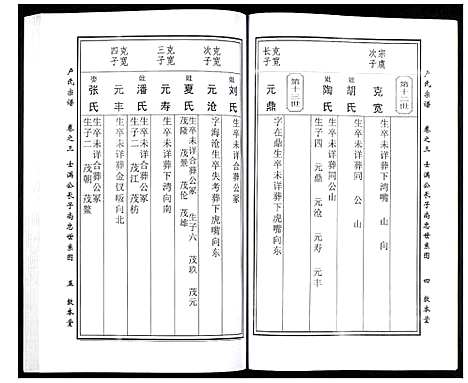 卢氏宗谱
卷之三 士满公长子尚忠世系图
四 敦本堂
第十二世
宗虞
次子
克宽
生卒未详葬下湾嘴 山 向
妣
胡氏
生卒未详葬同 公 山
妣
陶氏
生卒未详葬同公山
生子四 元鼎 元沧 元寿 元丰
第十三世
克宽
长子
元鼎
字在鼎生卒未详葬下虎嘴向东
妣
刘氏
生卒未详合葬公冢
克宽
次子
元沧
字海沧生卒失考葬下虎嘴向东
妣
夏氏
生卒未详合葬公冢 生子六 茂玖 茂元
茂隆 茂 茂伦 茂雄
克宽
三子
元寿
生卒未详葬下湾向南
妣
潘氏
生卒未详合葬公冢
生子二 茂江 茂枋
克宽
四子
元丰
生卒未详葬金仅畈向北
娶
张氏
生卒未详葬合公冢
生子二 茂朝 茂鳌
卢氏宗谱
卷之三 士满公长子尚忠世系图
五 敦本堂